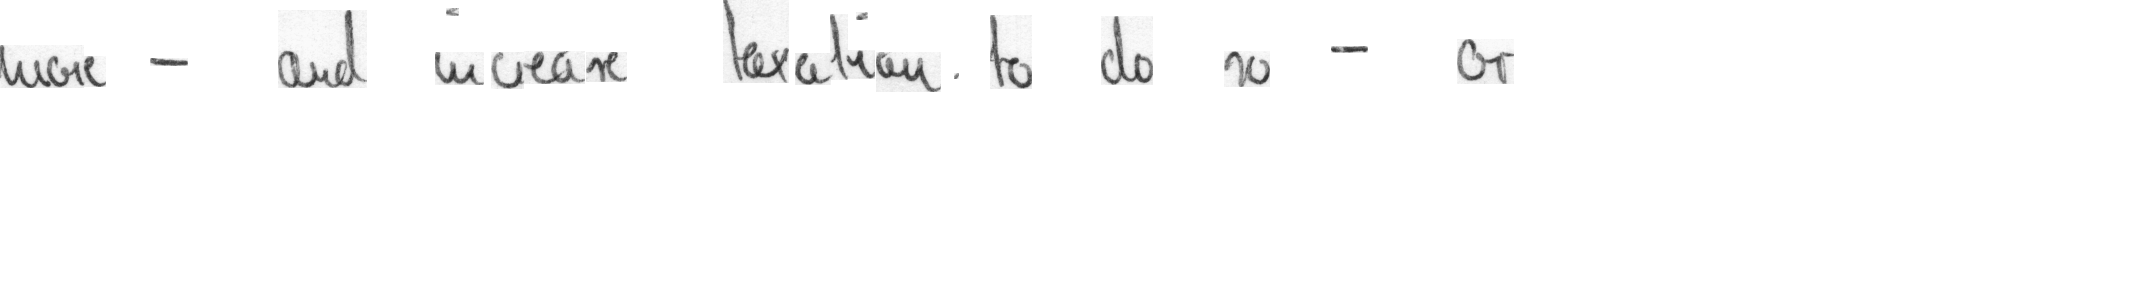 more - and increase taxation. to do so - or